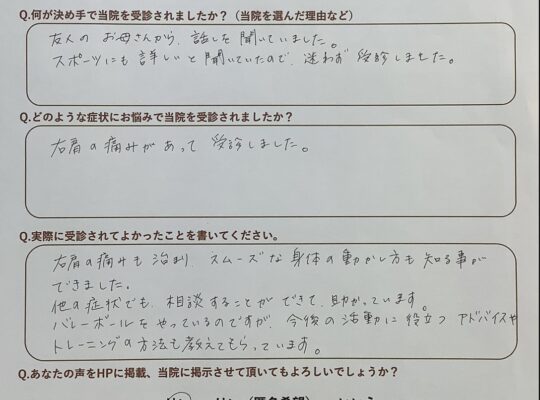 Q.何が決め手で当院を受診されましたか？（当院を選んだ理由など）
友人の お母さんから、話しを聞いていました。
スポーツにも詳しいと聞いていたので、迷わず受診しました。
Q.どのような症状にお悩みで当院を受診されましたか？
右肩の痛みがあって 受診しました。
Q.実際に受診されてよかったことを書いてください。
右肩の痛みも治まり、スムーズな身体の動かし方も知る事が
できました。
他の症状でも、相談することができて、助かっています。
バレーボールをやっているのですが、今後の活動に役立つ アドバイスや
トレーニングの方法も教えてもらっています。
Q.あなたの声をHPに掲載、当院に掲示させて頂いてもよろしいでしょうか？